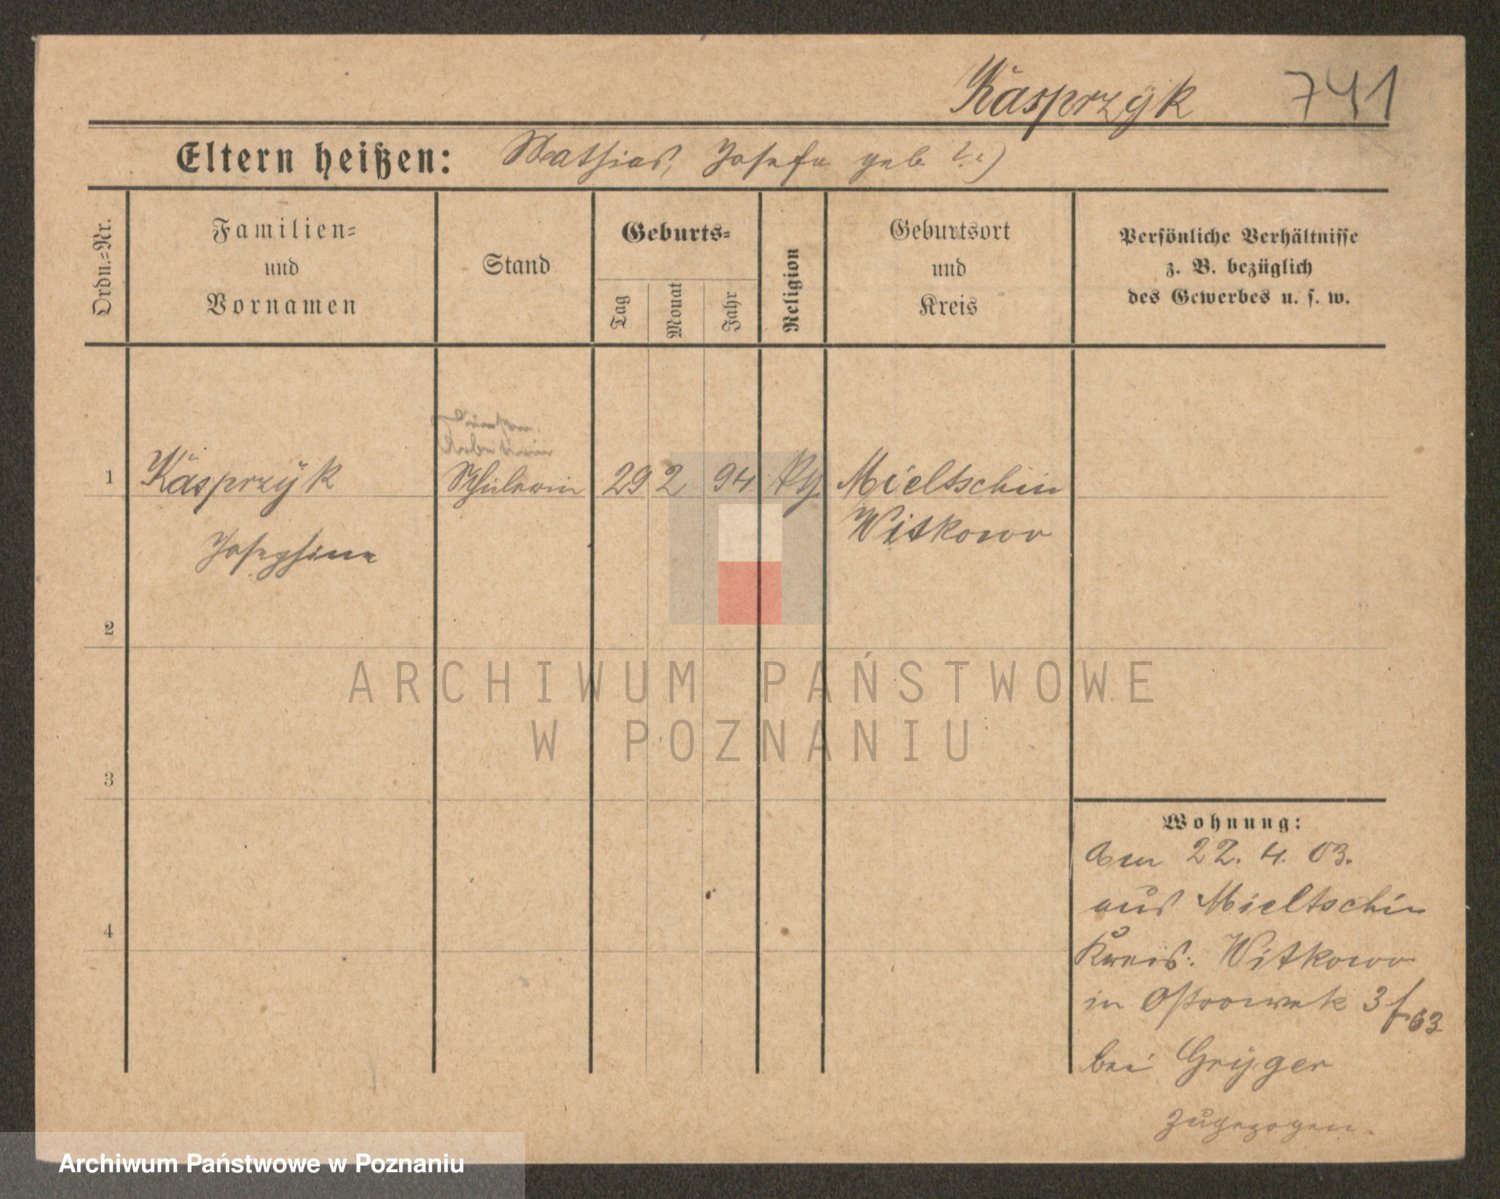 Kasprzÿk 741
Eltern heißen: Mathias, Josefa geb (?)
Ordn.=Nr.
Familien=
und
Vornamen
Stand
Geburts=
Tag
Monat
Jahr
Religion
Geburtsort
und
Kreis
Persönliche Verhältnisse
z. B. bezüglich
des Gewerbes u. s. w.
Arbeiterin
1 Kasprzÿk Schülerin 29 2 94 Mieltschin
Josephine Witkowo
2
ARCHIWUM PAŃSTWOWE
W POZNANIU
3
4
Wohnung:
Am 22. 4. 03.
aus Mieltschin
Kreis: Witkowo
in Ostrowek 3
bei Grÿger
zugezogen.
Archiwum Państwowe w Poznaniu